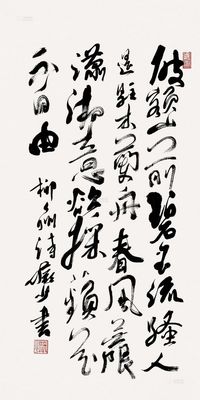 破额山前碧玉流骚人
遥驻木兰舟春风无限
潇湘意欲采蘋花
不自由
柳州诗
书